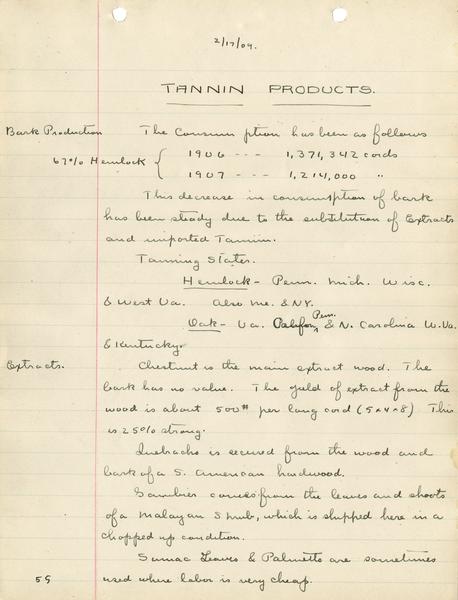 2/17/09.
TANNIN PRODUCTS.
Bark Production The Consumption has been as follows
67% Hemlock { 1906 --- 1,371,342 cords
1907 --- 1,214,000 "
This decrease in consumption of bark
has been steady due to the substitution of Extracts
and imported Tannin.
Tanning States.
Hemlock - Penn. Mich. Wisc.
& West Va. Also Me. & NY.
Oak - Va. Califor, Penn. & N. Carolina W. Va.
& Kentucky.
Extracts. Chestnut is the main extract wood. The
bark has no value. The yield of extract from the
wood is about 500# per long cord (5x4x8) This
is 25% strong.
Quebracho is secured from the wood and
bark of a S. American hardwood.
Gambier comes from the leaves and shoots
of a Malayan Shrub, which is shipped here in a
chopped up condition.
Sumac Leaves & Palmetto are sometimes
used where labor is very cheap.
55